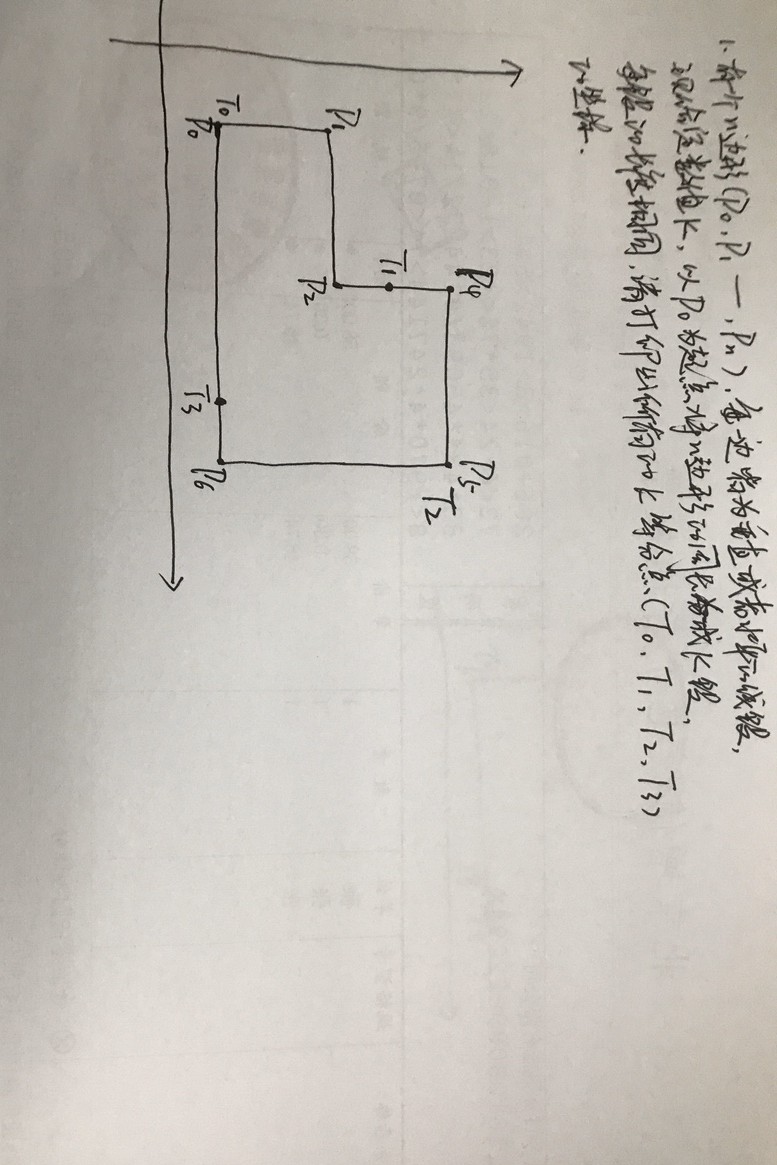 1. 有个n边形(P0,P1 —,Pn),每边皆为垂直或者水平的线段,
现给定数值K,以P0为起点将n边形的周长分成K段,
每段的长度相同,请打印出所有的K等分点(T0,T1,T2,T3)
的坐标.
P4 P5
T2
T1
P1
P2
T0
P0 T3 P6